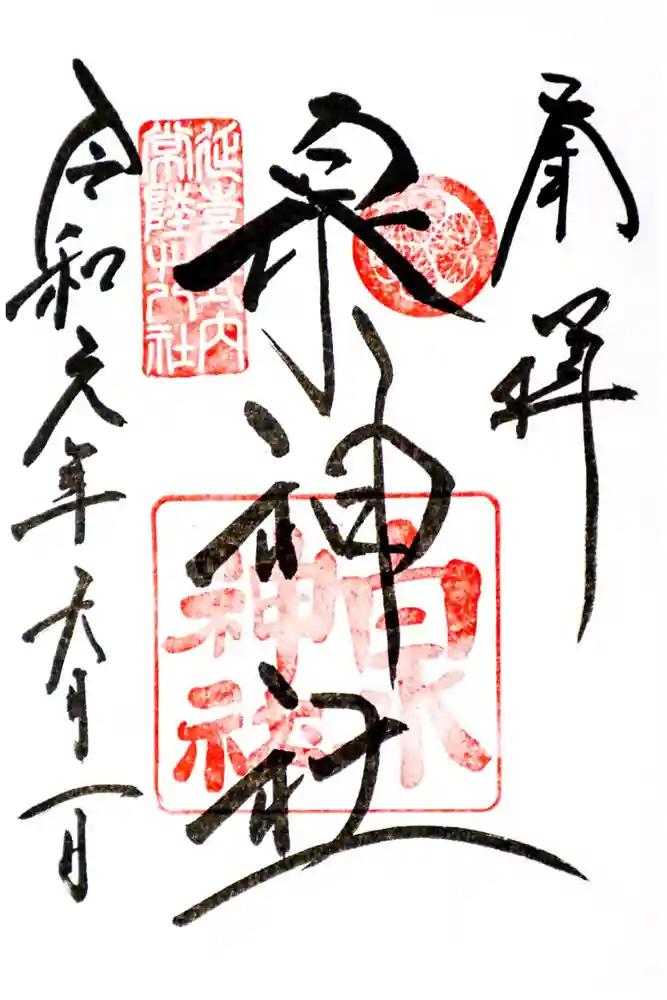 奉拝
泉神社
泉
神社
延喜式内
常陸廿八社
令和元年六月一日